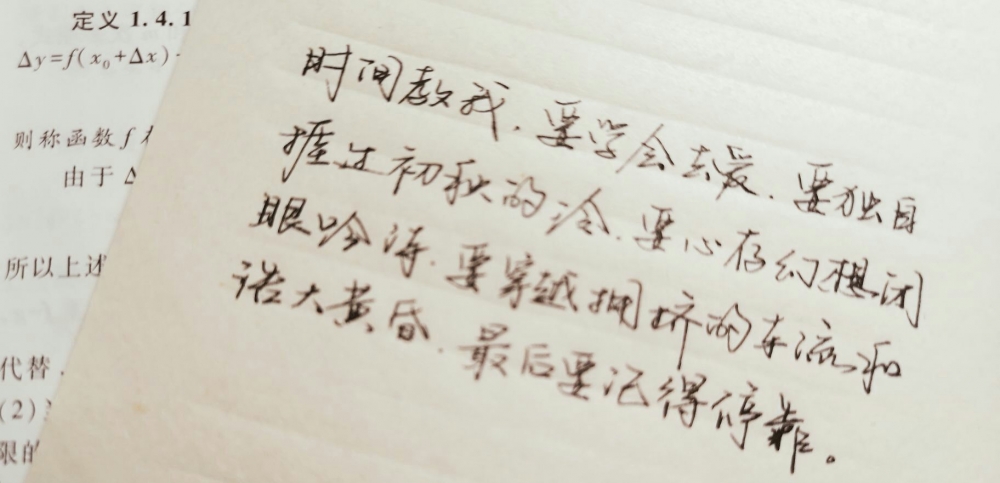 定义 1.4.1
Δy=f(x₀+Δx)-
则称函数 f
由于 Δ
所以上述
代替
(2)
限的
时间教我,要学会去爱,要独自
捱过初秋的冷,要心存幻想闭
眼吟海,要穿越拥挤的车流和
诺大黄昏,最后要记得停靠。